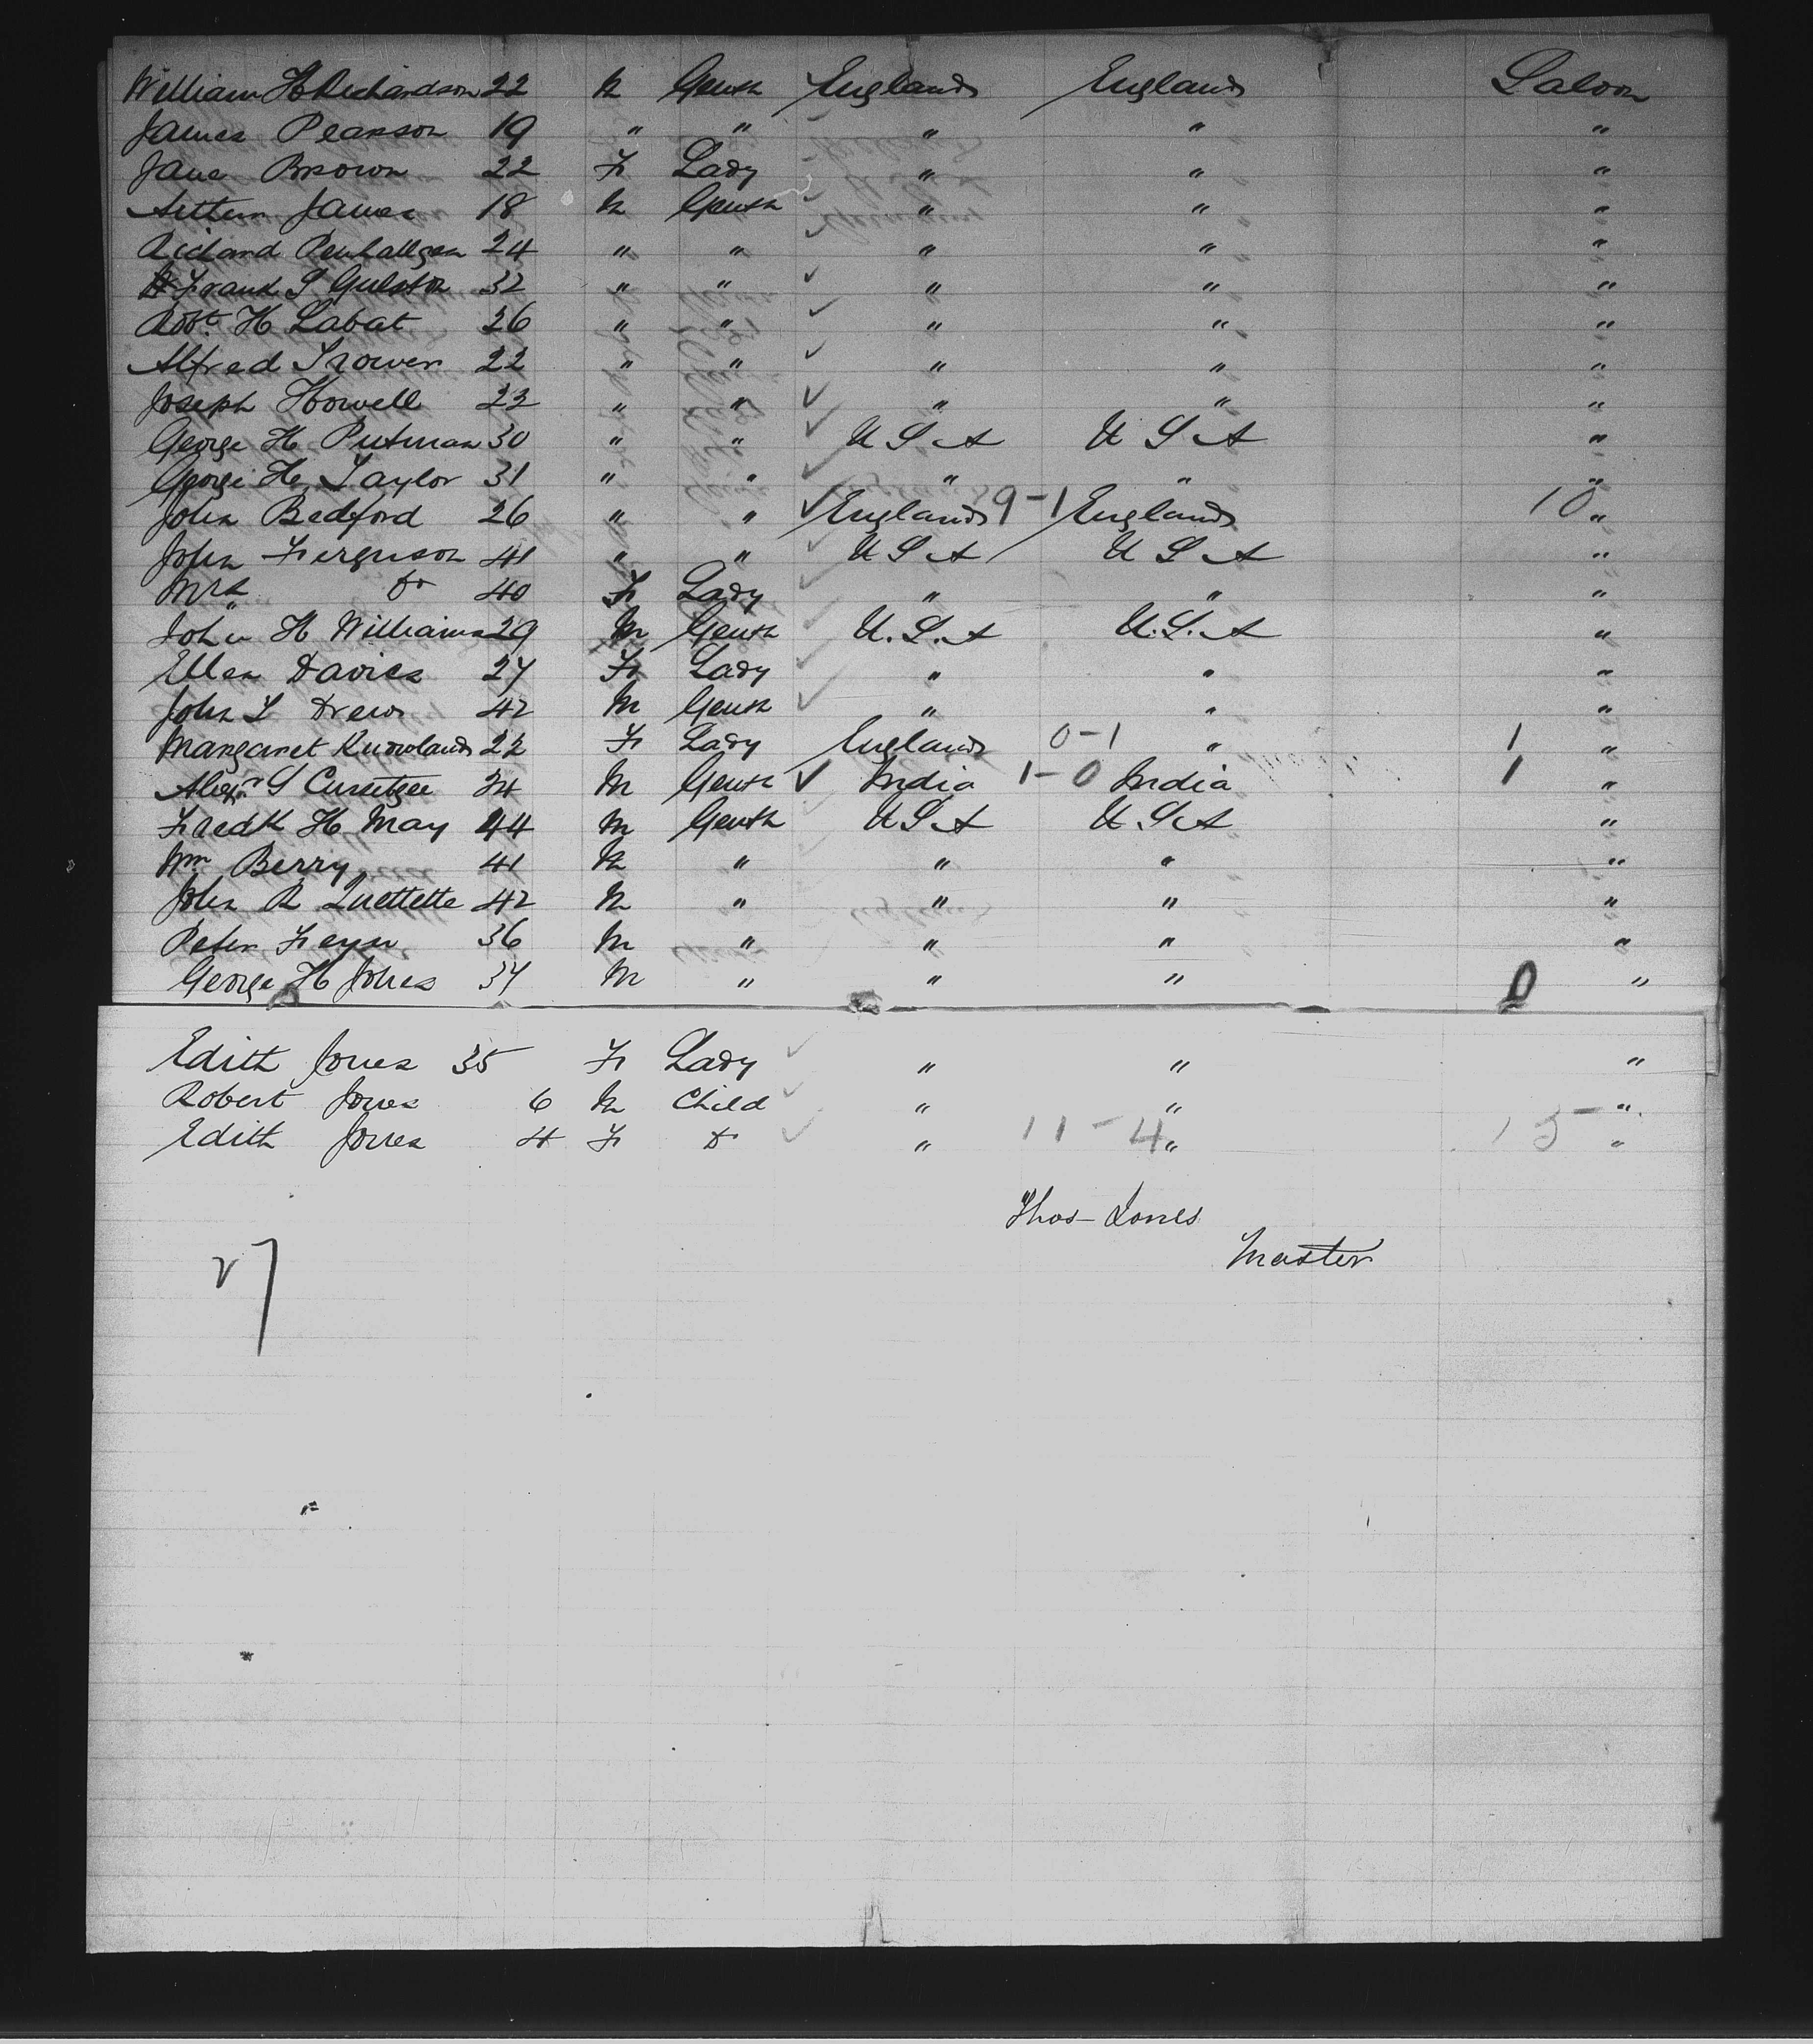 William H Richardson 22 M Gentn England England Saloon
James Pearson 19 " " " " "
Jane Brown 22 F Lady " " "
Arthur James 18 M Gentn " " "
Richard Penhallgen 24 " " " " "
Frank S Gulston 32 " " " " "
Robt. H Labat 26 " " " " "
Alfred Trower 22 " " " " "
Joseph Howell 23 " " " " "
George H Putman 30 " " U S A U S A "
George H Taylor 31 " " " " "
John Bedford 26 " " England 9-1 England 10 "
John Ferguson 41 " " U S A U S A "
Mrs " Do 40 F Lady " " "
John H Williams 29 M Gentn U.S.A U.S.A "
Ellen Davies 27 F Lady " " "
John L Drew 42 M Gentn " " "
Margaret Knowland 22 F Lady England 0-1 " 1 "
Alexr S Cursetgee 24 M Gentn India 1-0 India 1 "
Fredk H May 44 M Gentn U S A U S A "
Wm Berry 41 M " " " "
John R 42 M " " " "
Peter 36 M " " " "
George H Jones 37 M " " " 0 "
Edith Jones 35 F Lady " " "
Robert Jones 6 M Child " " "
Edith Jones 4 F Do " 11-4 " 15 "
Thos Jones
Master
27